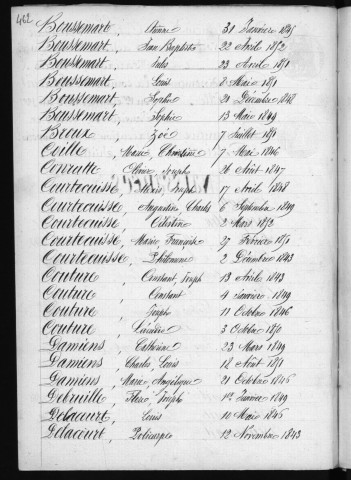 462
Boussemart, Etienne 31 Janvier 1845
Boussemart, Jean Baptiste 22 Avril 1852
Boussemart, Jules 23 Avril 1851
Boussemart, Louis 8 Mai 1851
Boussemart, Sophie 21 Décembre 1848
Boussemart, Sophie 13 Mai 1849
Breux, Zoé 7 Juillet 1851
Coille, Marie Christine 7 Mai 1846
Conratte, Joseph 26 Août 1847
Courtecuisse, Alexis Joseph 17 Avril 1848
Courtecuisse, Augustin Charles 6 Septembre 1849
Courtecuisse, Célestine 2 Mars 1852
Courtecuisse, Marie Françoise 27 Février 1851
Courtecuisse, Philomène 2 Décembre 1843
Couture, Constant Joseph 13 Avril 1843
Couture, Constant 4 Janvier 1849
Couture, Joseph 11 Octobre 1846
Couture, 3 Octobre 1850
Damiens, Catherine 23 Mars 1849
Damiens, Charles Louis 12 Août 1851
Damiens, Marie Angélique 21 Octobre 1845
Debruille, Joseph 1er Janvier 1849
Delacourt, Louis 10 Mai 1845
Delacourt, Policarpe 12 Novembre 1843